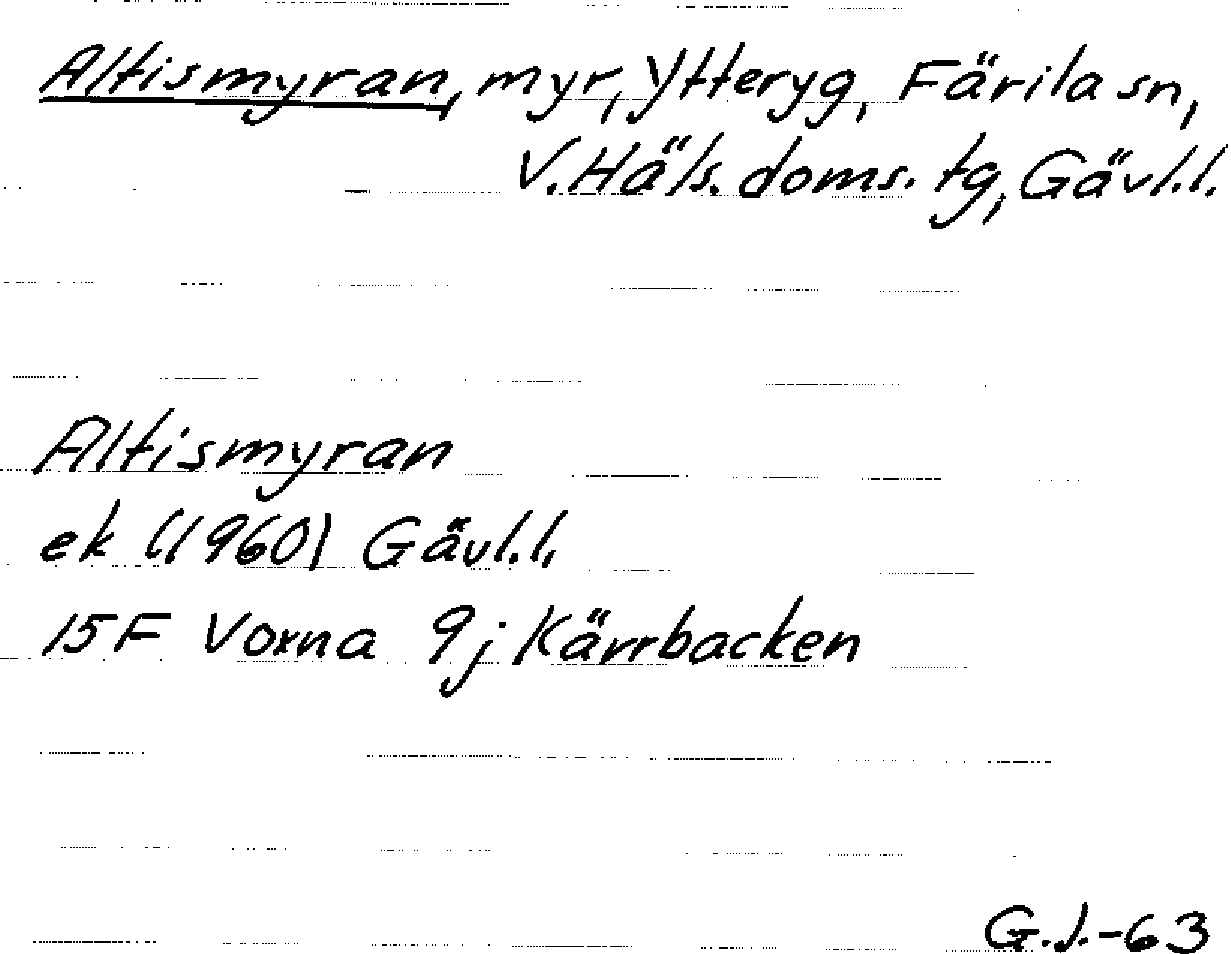 Altismyran, myr, Ytteryg, Färila sn,
V. Häls. doms. tg, Gävl.l.
Altismyran
ek (1960) Gävl.l.
15F Voxna 9j Kärrbacken
G.J.-63